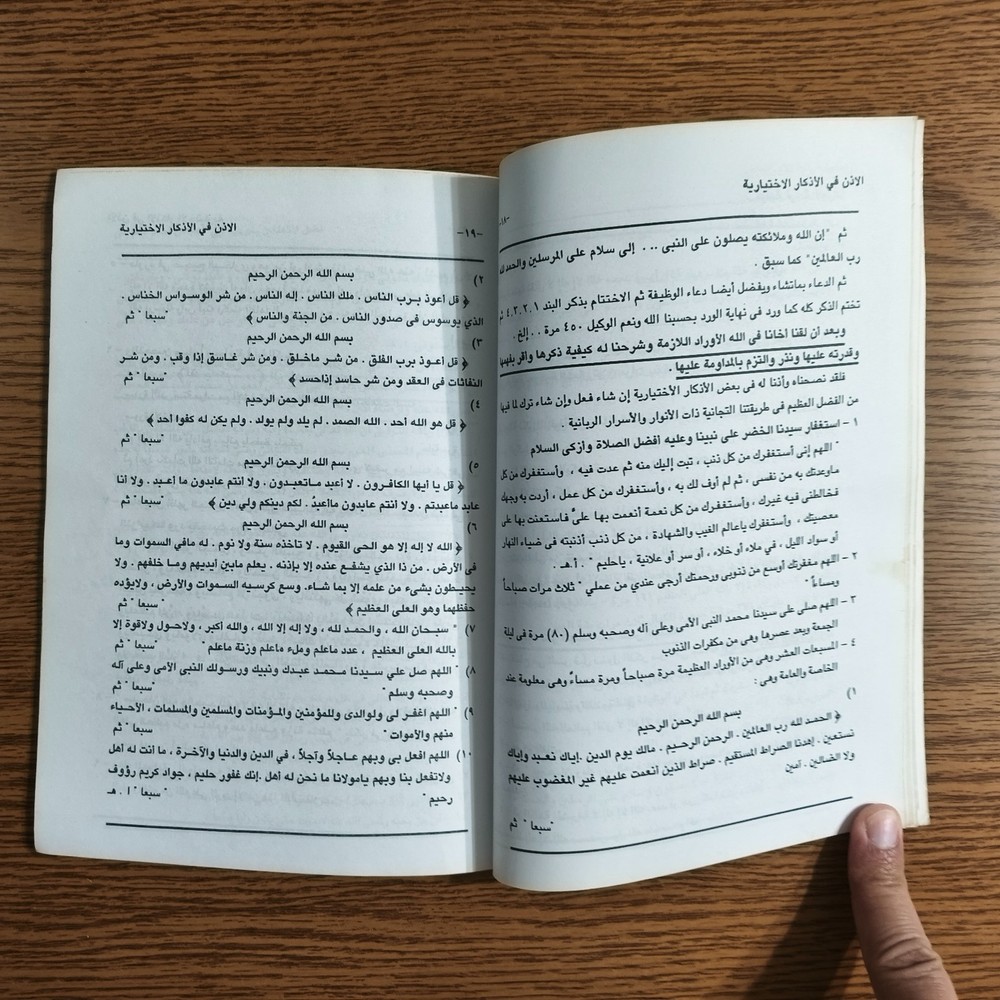 الاذن في الأذكار الاختيارية
-١٨-
ثم "إن الله وملائكته يصلون على النبى ... إلى سلام على المرسلين والحمد لله
رب العالمين" كما سبق .
ثم الدعاء بماتشاء ويفضل أيضا دعاء الوظيفة ثم الاختتام بذكر البند ٤،٣،٢،١ ثم
تختم الذكر كله كما ورد فى نهاية الورد بحسبنا الله ونعم الوكيل ٤٥٠ مرة . . إلخ .
وبعد أن لقنا أخانا فى الله الأوراد اللازمة وشرحنا له كيفية ذكرها وأقر بفهمها
وقدرته عليها ونذر والتزم بالمداومة عليها .
فلقد نصحناه وأذنا له فى بعض الأذكار الأختيارية إن شاء فعل وإن شاء ترك لما فيها
من الفضل العظيم فى طريقتنا التجانية ذات الأنوار والأسرار الربانية .
١ - استغفار سيدنا الخضر على نبينا وعليه أفضل الصلاة وأزكى السلام
" اللهم إنى أستغفرك من كل ذنب ، تبت إليك منه ثم عدت فيه ، وأستغفرك من كل
ماوعدتك به من نفسى ، ثم لم أوف لك به ، وأستغفرك من كل عمل ، أردت به وجهك
فخالطنى فيه غيرك ، وأستغفرك من كل نعمة أنعمت بها علىَّ فاستعنت بها على
معصيتك ، وأستغفرك ياعالم الغيب والشهادة ، من كل ذنب أذنبته فى ضياء النهار
أو سواد الليل ، في ملاء أو خلاء ، أو سر أو علانية ، ياحليم " . أ.هـ .
٢ - اللهم مغفرتك أوسع من ذنوبى ورحمتك أرجى عندي من عملي " ثلاث مرات صباحاً
ومساءاً "
٣ - اللهم صلى على سيدنا محمد النبى الأمى وعلى آله وصحبه وسلم (٨٠) مرة فى ليلة
الجمعة وبعد عصرها وهى من مكفرات الذنوب
٤ - المسبعات العشر وهى من الأوراد العظيمة مرة صباحاً ومرة مساءً وهى معلومة عند
الخاصة والعامة وهى :
١)
بسم الله الرحمن الرحيم
﴿ الحمد لله رب العالمين . الرحمن الرحيم . مالك يوم الدين .إياك نعبد وإياك
نستعين . إهدنا الصراط المستقيم . صراط الذين أنعمت عليهم غير المغضوب عليهم
ولا الضالين . آمين
"سبعا " ثم
الاذن في الأذكار الاختيارية
-١٩-
٢) بسم الله الرحمن الرحيم
﴿ قل أعوذ برب الناس . ملك الناس . إله الناس . من شر الوسواس الخناس .
الذي يوسوس فى صدور الناس . من الجنة والناس ﴾ "سبعا " ثم
٣) بسم الله الرحمن الرحيم
﴿ قل أعوذ برب الفلق . من شر ماخلق . ومن شر غاسق إذا وقب . ومن شر
النفاثات فى العقد ومن شر حاسد إذاحسد ﴾ "سبعا " ثم
٤) بسم الله الرحمن الرحيم
﴿ قل هو الله أحد . الله الصمد . لم يلد ولم يولد . ولم يكن له كفوا أحد ﴾
"سبعا " ثم
٥) بسم الله الرحمن الرحيم
﴿ قل يا أيها الكافرون . لا أعبد ماتعبدون . ولا انتم عابدون ما أعبد . ولا أنا
عابد ماعبدتم . ولا أنتم عابدون ماأعبدُ . لكم دينكم ولي دين ﴾ "سبعا " ثم
٦) بسم الله الرحمن الرحيم
﴿ الله لا إله إلا هو الحى القيوم . لا تأخذه سنة ولا نوم . له مافي السموات وما
فى الأرض . من ذا الذي يشفع عنده إلا بإذنه . يعلم مابين أيديهم وما خلفهم . ولا
يحيطون بشىء من علمه إلا بما شاء. وسع كرسيه السموات والأرض ، ولايؤده
حفظهما وهو العلى العظيم ﴾ "سبعا " ثم
٧) " سبحان الله ، والحمد لله ، ولا إله إلا الله ، والله أكبر ، ولاحول ولاقوة إلا
بالله العلى العظيم ، عدد ماعلم وملء ماعلم وزنة ماعلم" "سبعا " ثم
٨) " اللهم صل علي سيدنا محمد عبدك ونبيك ورسولك النبى الأمى وعلى آله
وصحبه وسلم " "سبعا " ثم
٩) " اللهم اغفر لى ولوالدى وللمؤمنين والمؤمنات والمسلمين والمسلمات ، الأحياء
منهم والأموات " "سبعا " ثم
١٠) اللهم افعل بى وبهم عاجلاً وآجلاً ، في الدين والدنيا والآخرة ، ما انت له أهل
ولاتفعل بنا وبهم يامولانا ما نحن له أهل .إنك غفور حليم ، جواد كريم رؤوف
رحيم " " سبعا " ا . هـ